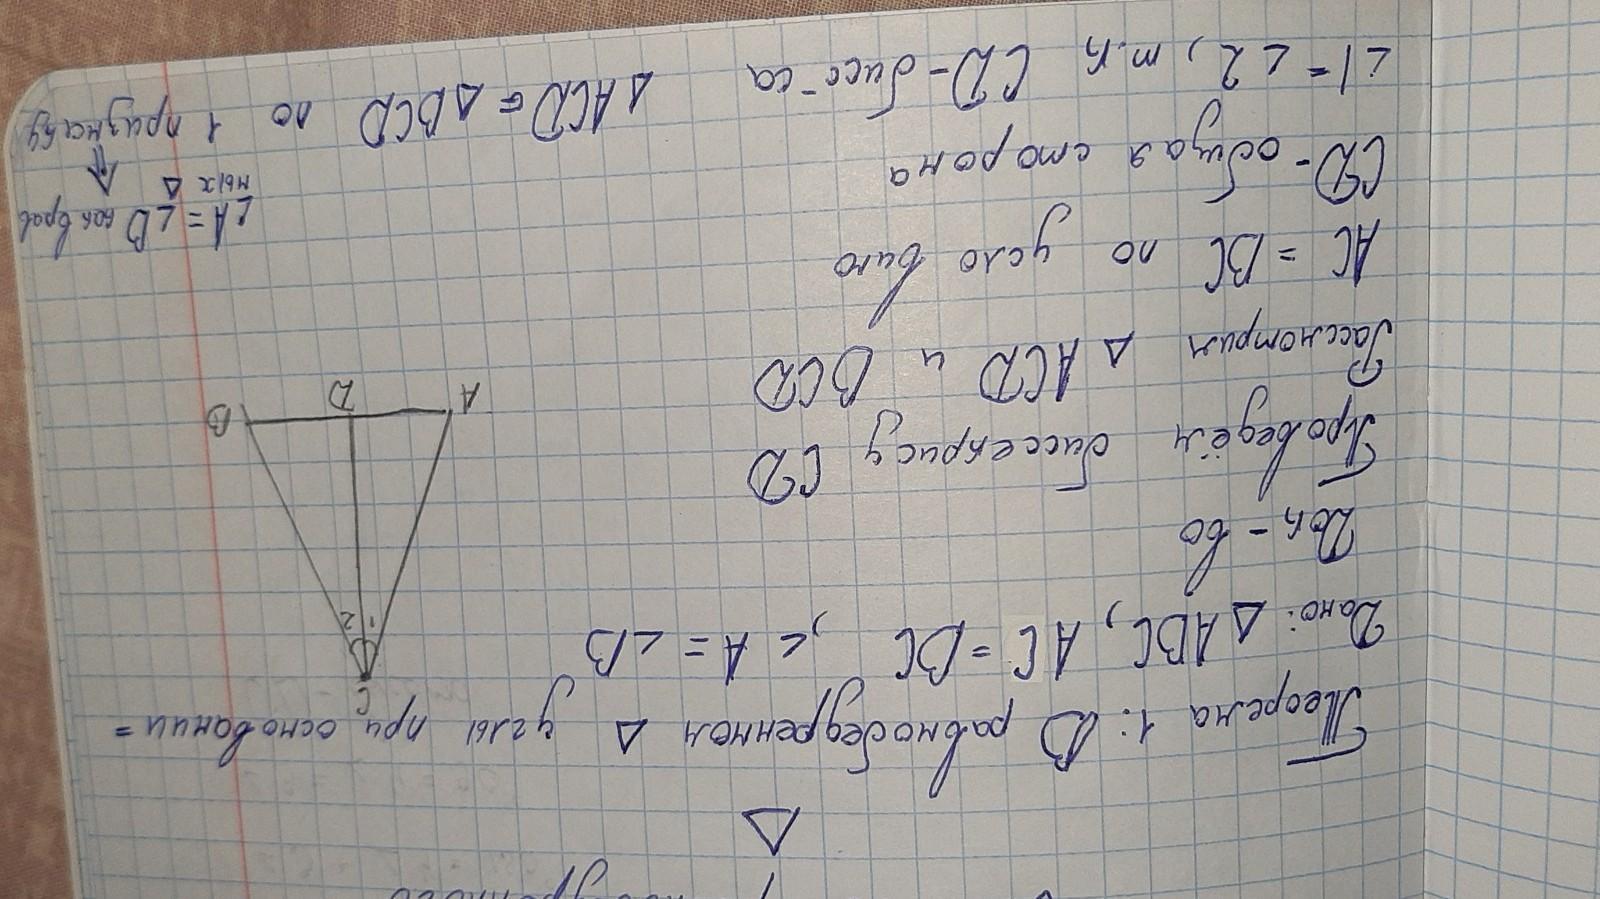 Теорема 1: В равнобедренном △ углы при основании =
Дано: △ ABC, AC = BC, ∠A = ∠B
Док-во
Проведём биссекрису CD
Рассмотрим △ ACD и BCD
AC = BC по усло вию
CD - общая сторона
∠1 = ∠2, т.к CD - бисс-са
△ ACD = △ BCD по 1 признаку
∠A = ∠B как в рав
ных △
C
1 2
A D B